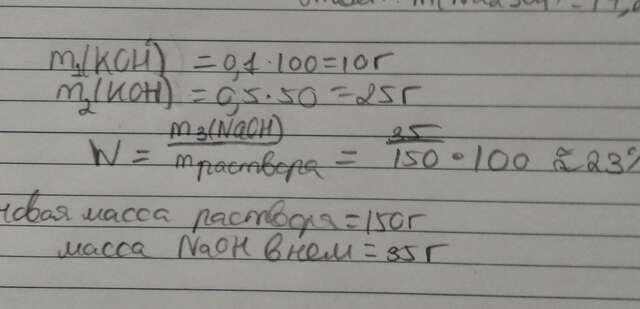 m₁(KOH) = 0,1·100=10г
m₂(KOH) = 0,5·50=25г
W = m₃(NaOH) / mраствора = 35/150 · 100 ≈ 23%
новая масса раствора=150г
масса NaOH в нем=35г